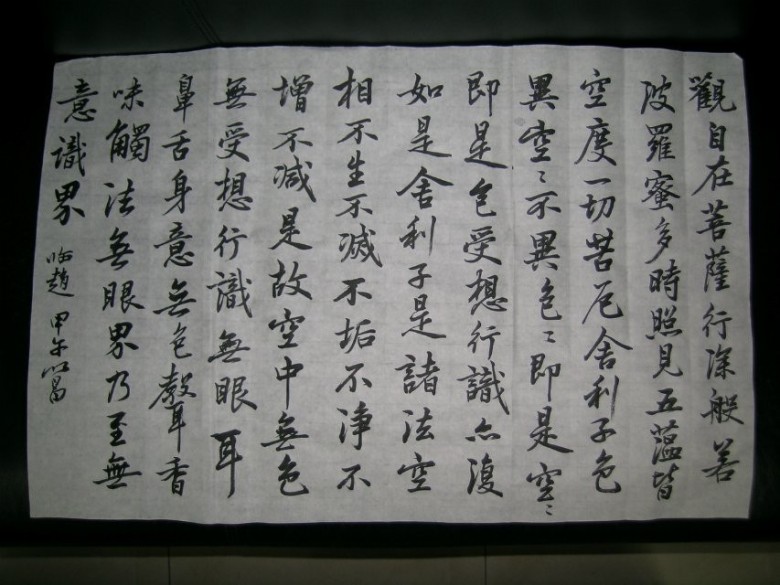 觀自在菩薩行深般若
波羅蜜多時照見五蘊皆
空度一切苦厄舍利子色
異空〻不異色〻即是空〻
即是色受想行識亦復
如是舍利子是諸法空
相不生不滅不垢不淨不
增不减是故空中無色
無受想行識無眼耳
鼻舌身意無色聲香
味觸法無眼界乃至無
意識界
臨趙 甲午